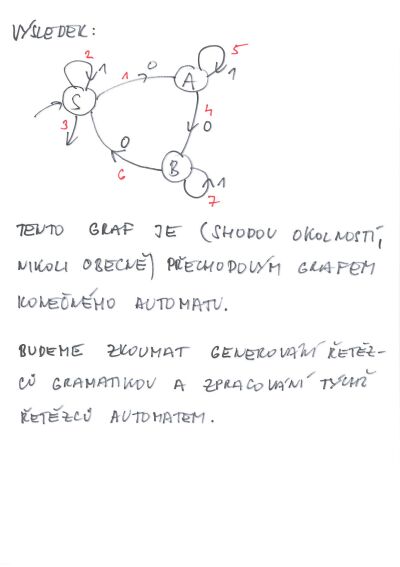 VÝSLEDEK:
2
1
1
0
5
1
S
A
3
4
0
0
B
6
1
7
TENTO GRAF JE (SHODOU OKOLNOSTÍ,
NIKOLI OBECNĚ) PŘECHODOVÝM GRAFEM
KONEČNÉHO AUTOMATU.
BUDEME ZKOUMAT GENEROVÁNÍ ŘETĚZ-
CŮ GRAMATIKOU A ZPRACOVÁNÍ TÝCHŽ
ŘETĚZCŮ AUTOMATEM.